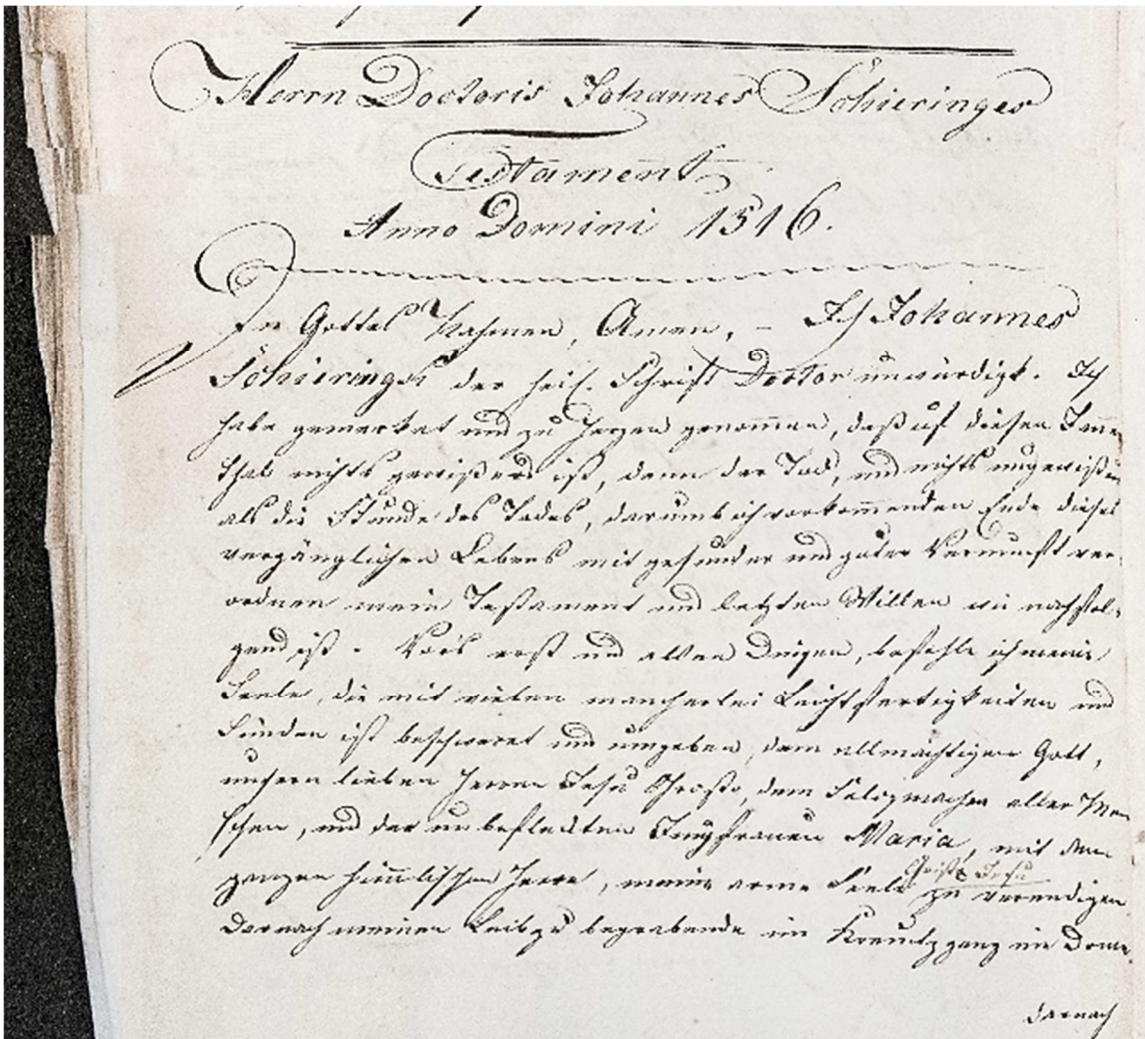 Herrn Doctoris Johannes Schieringes
Testament
Anno Domini 1516.
In Gottes Nahmen, Amen, – Ich Johannes
Schieringk der heil. Schrift Doctor unwürdigk. Ich
habe gemerket und zu Herzen genommen, daß uf diesen Jamer
thal nichts gewißers ist, denn der Tod, und nichts ungewißers
als die Stunde des Todes, darumb ich vorkommenden Ende dieses
vergänglichen Lebens mit gesunder und guter Vernunfft ver-
ordnen mein Testament und letzten Willen wie nachfol-
gend ist. Vors erst und allen Dingen, befehle ich meine
Seele, die mit vielen mancherlei Leichtfertigkeiten und
Sünden ist beschweret und umgeben, dem allmächtigen Gott,
unsern lieben Herren Jesu Christo, dem Seligmacher aller Men
schen, und der unbeflecten Jungfrauen Maria, mit dem
ganzen himmlischen Heere, meine arme Seele Christo Jesu zu vereidigen
Darnach meinen Leib zu begrabende im Kreutzgang im Dome.
darnach